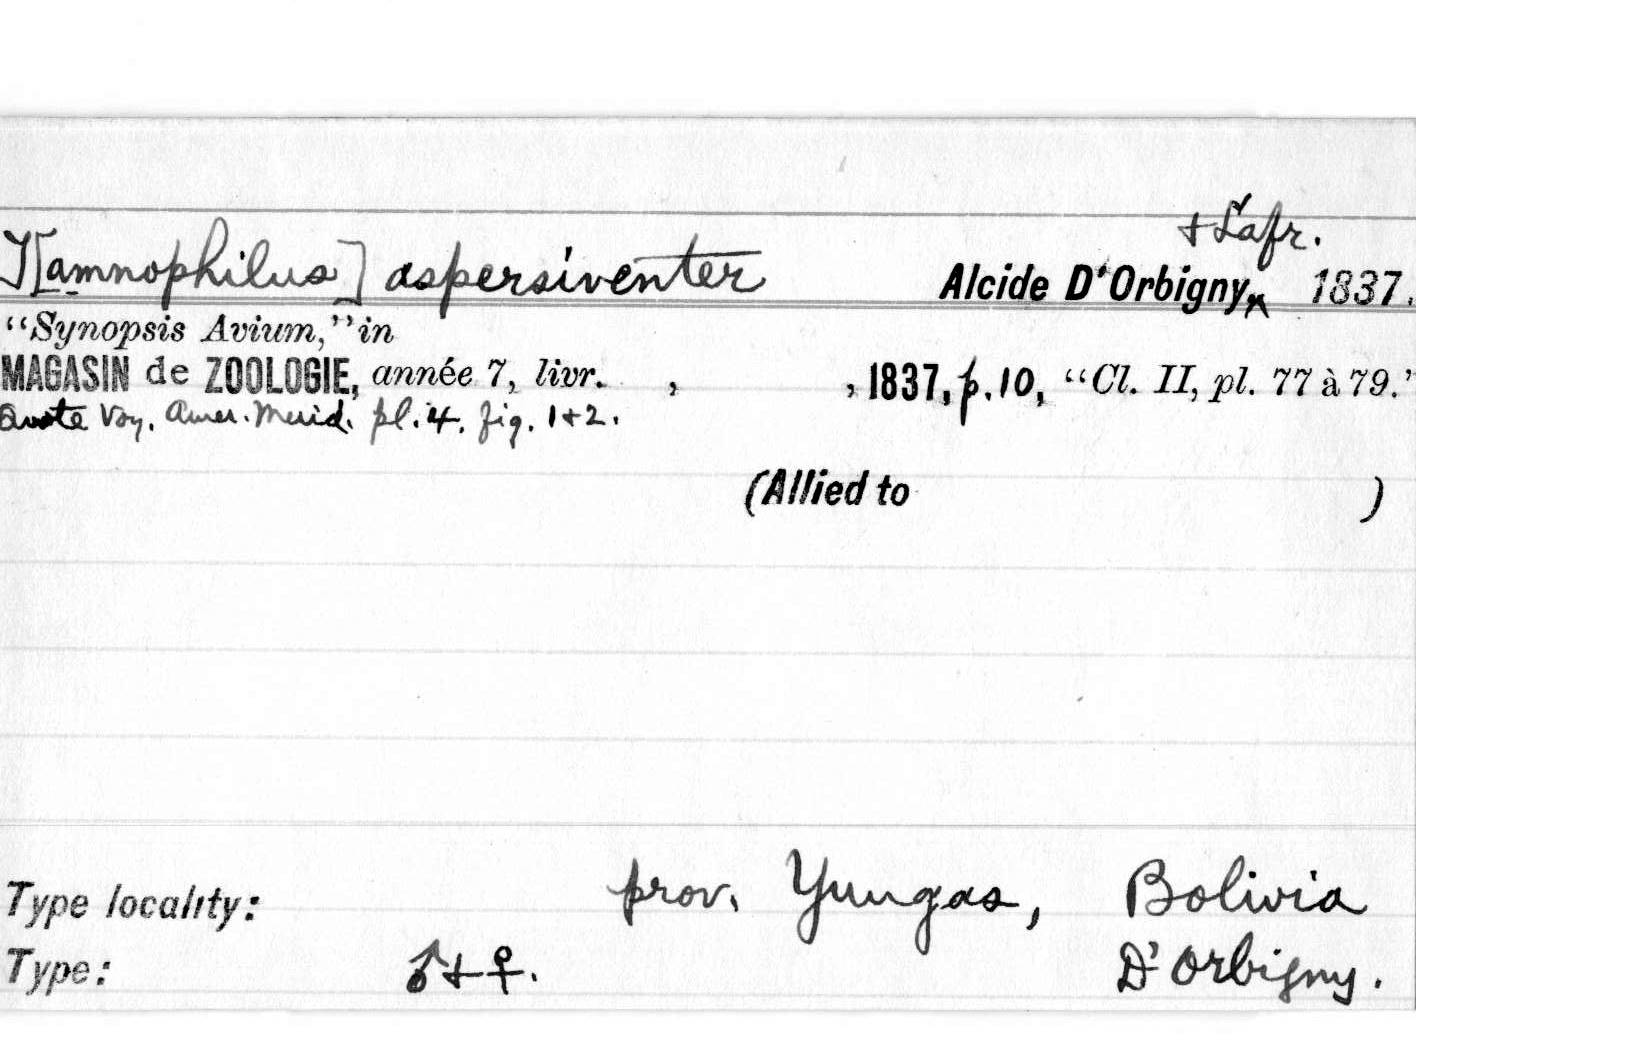 + Lafr.
T[amnophilus] aspersiventer Alcide D'Orbigny, 1837.
"Synopsis Avium," in
MAGASIN de ZOOLOGIE, année 7, livr. , , 1837, p. 10, "Cl. II, pl. 77 à 79."
Quote Voy. Amer. Merid. pl. 4, fig. 1+2.
(Allied to )
Type locality: prov. Yungas, Bolivia
Type: ♂+♀. D'Orbigny.